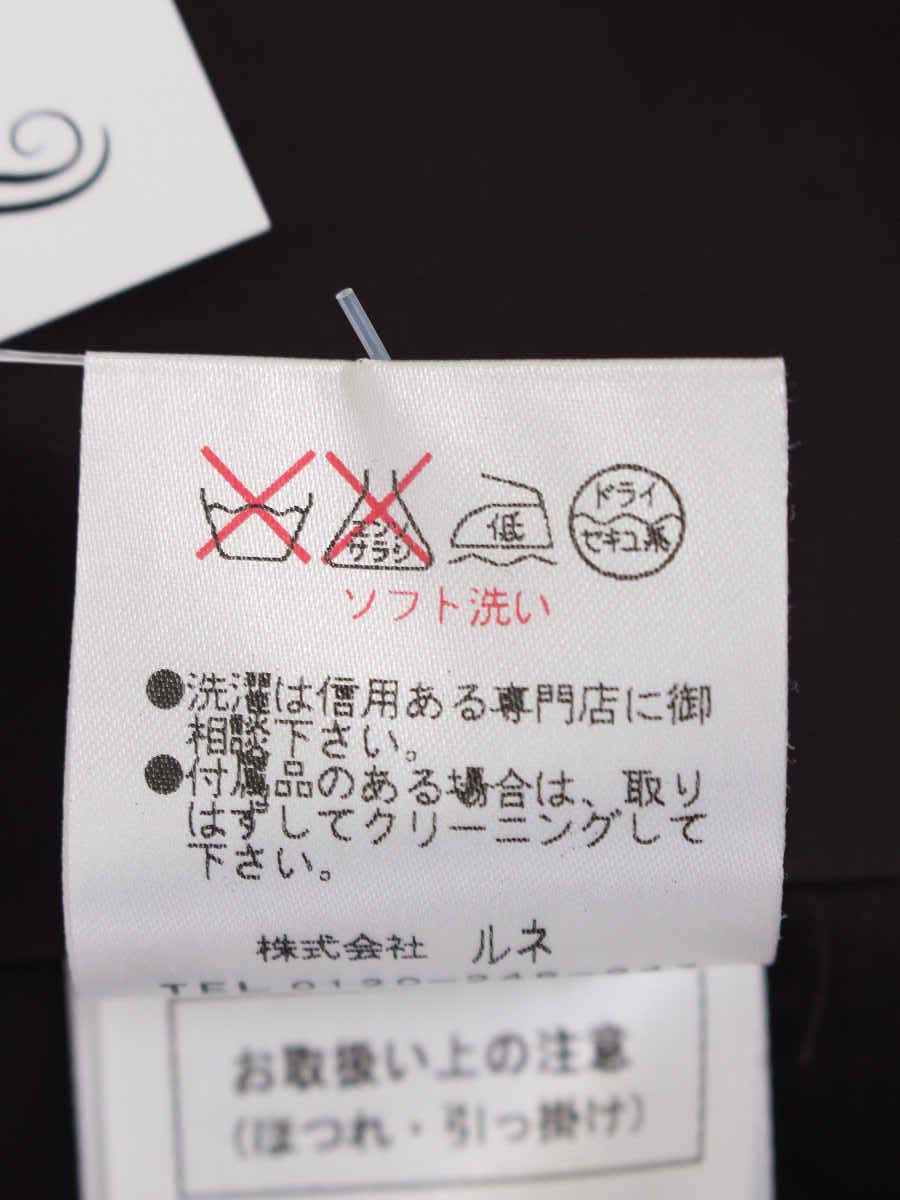 エンソ
サラシ
低
ドライ
セキユ系
ソフト洗い
●洗濯は信用ある専門店に御
相談下さい。
●付属品のある場合は、取り
はずしてクリーニングして
下さい。
株式会社 ルネ
TEL 0120-248-
お取扱い上の注意
(ほつれ・引っ掛け)